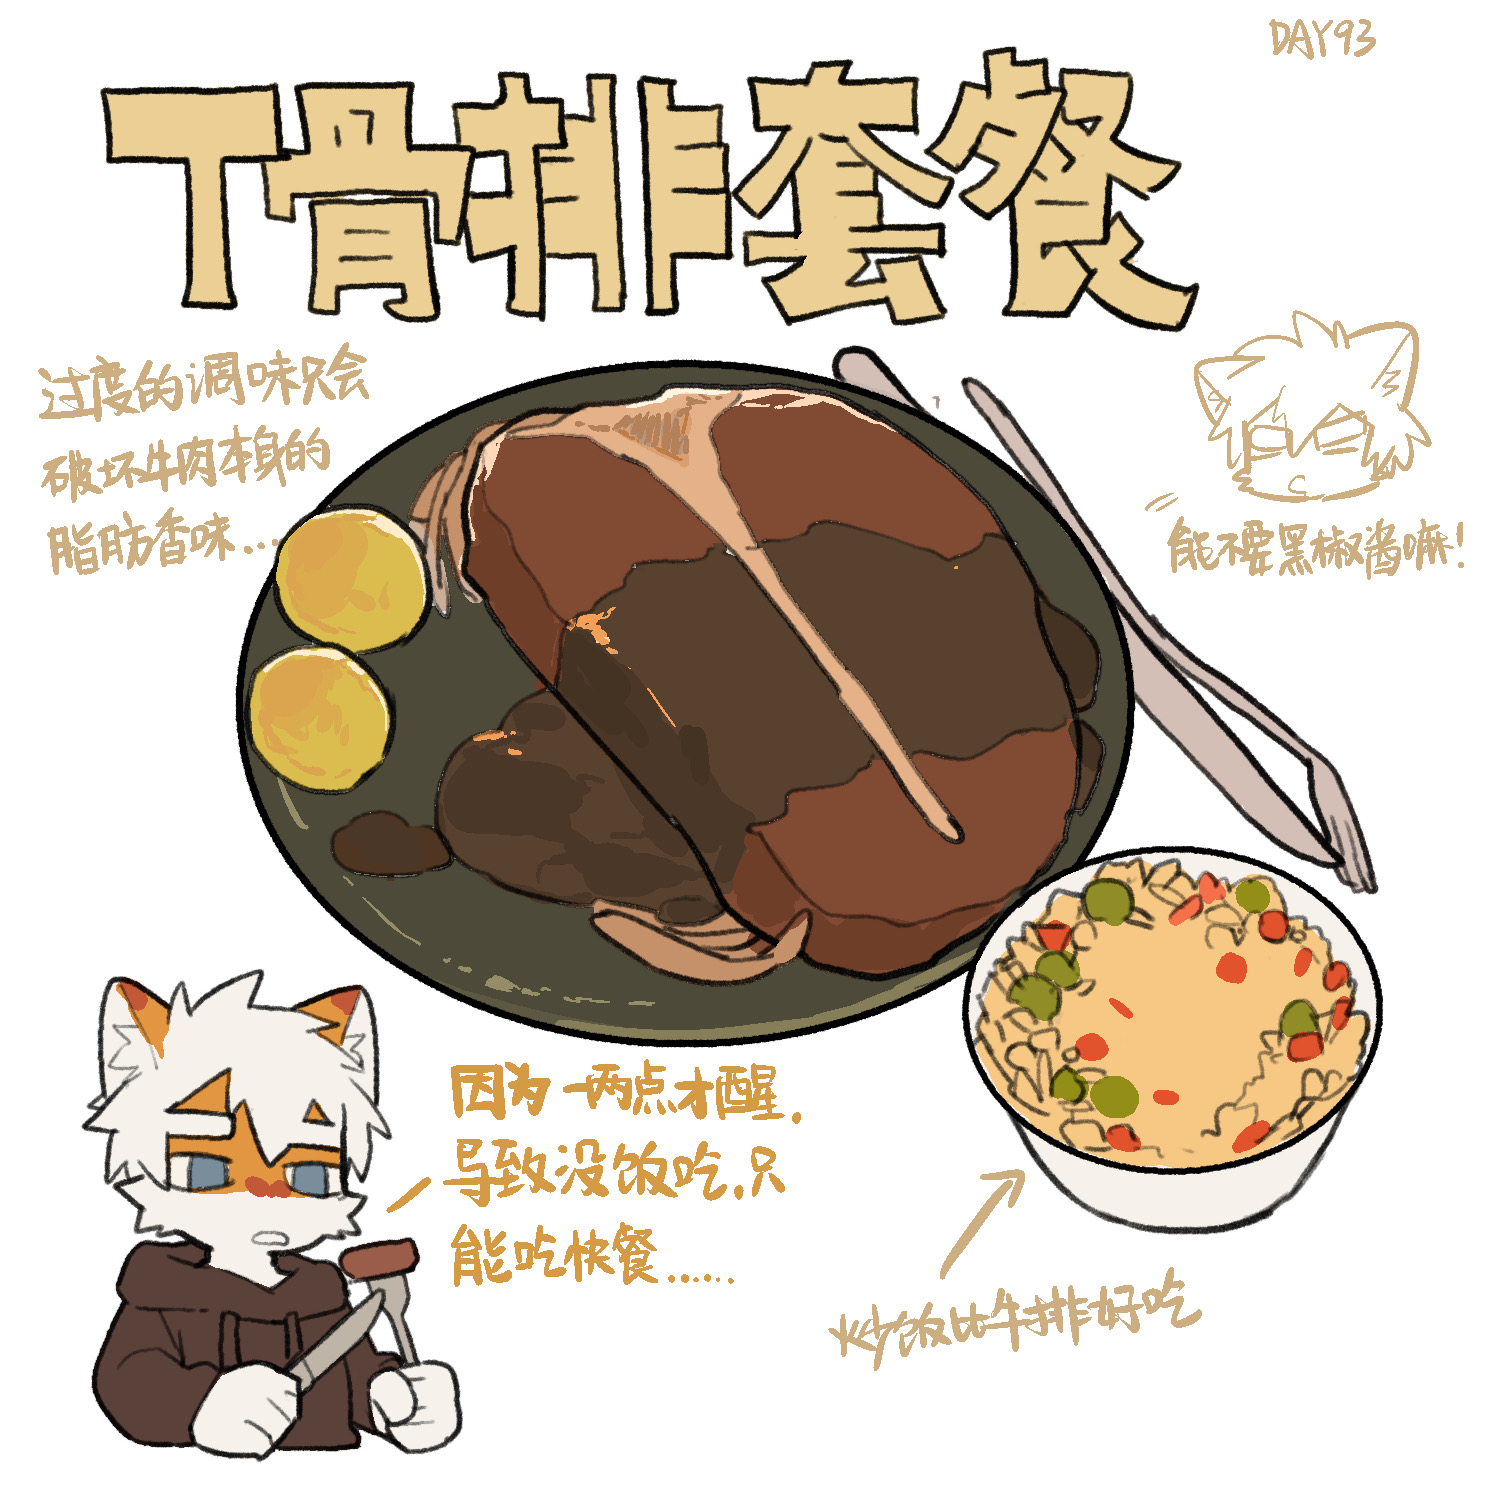 DAY93
T骨排套餐
过度的调味只会
破坏牛肉本身的
脂肪香味...
能不要黑椒酱嘛!
因为一两点才醒.
导致没饭吃.只
能吃快餐......
炒饭比牛排好吃